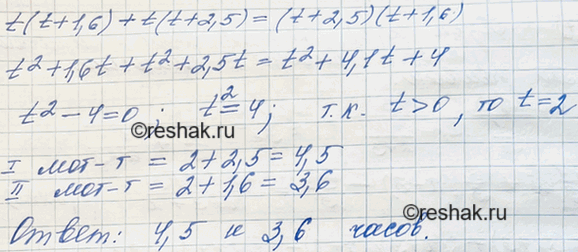 t(t+1,6)+t(t+2,5)=(t+2,5)(t+1,6)
t²+1,6t+t²+2,5t=t²+4,1t+4
t²-4=0; t²=4; т.к. t>0, то t=2
©reshak.ru
I мот-т = 2+2,5=4,5
II мот-т = 2+1,6=3,6
©reshak.ru
Ответ: 4,5 и 3,6 часов.